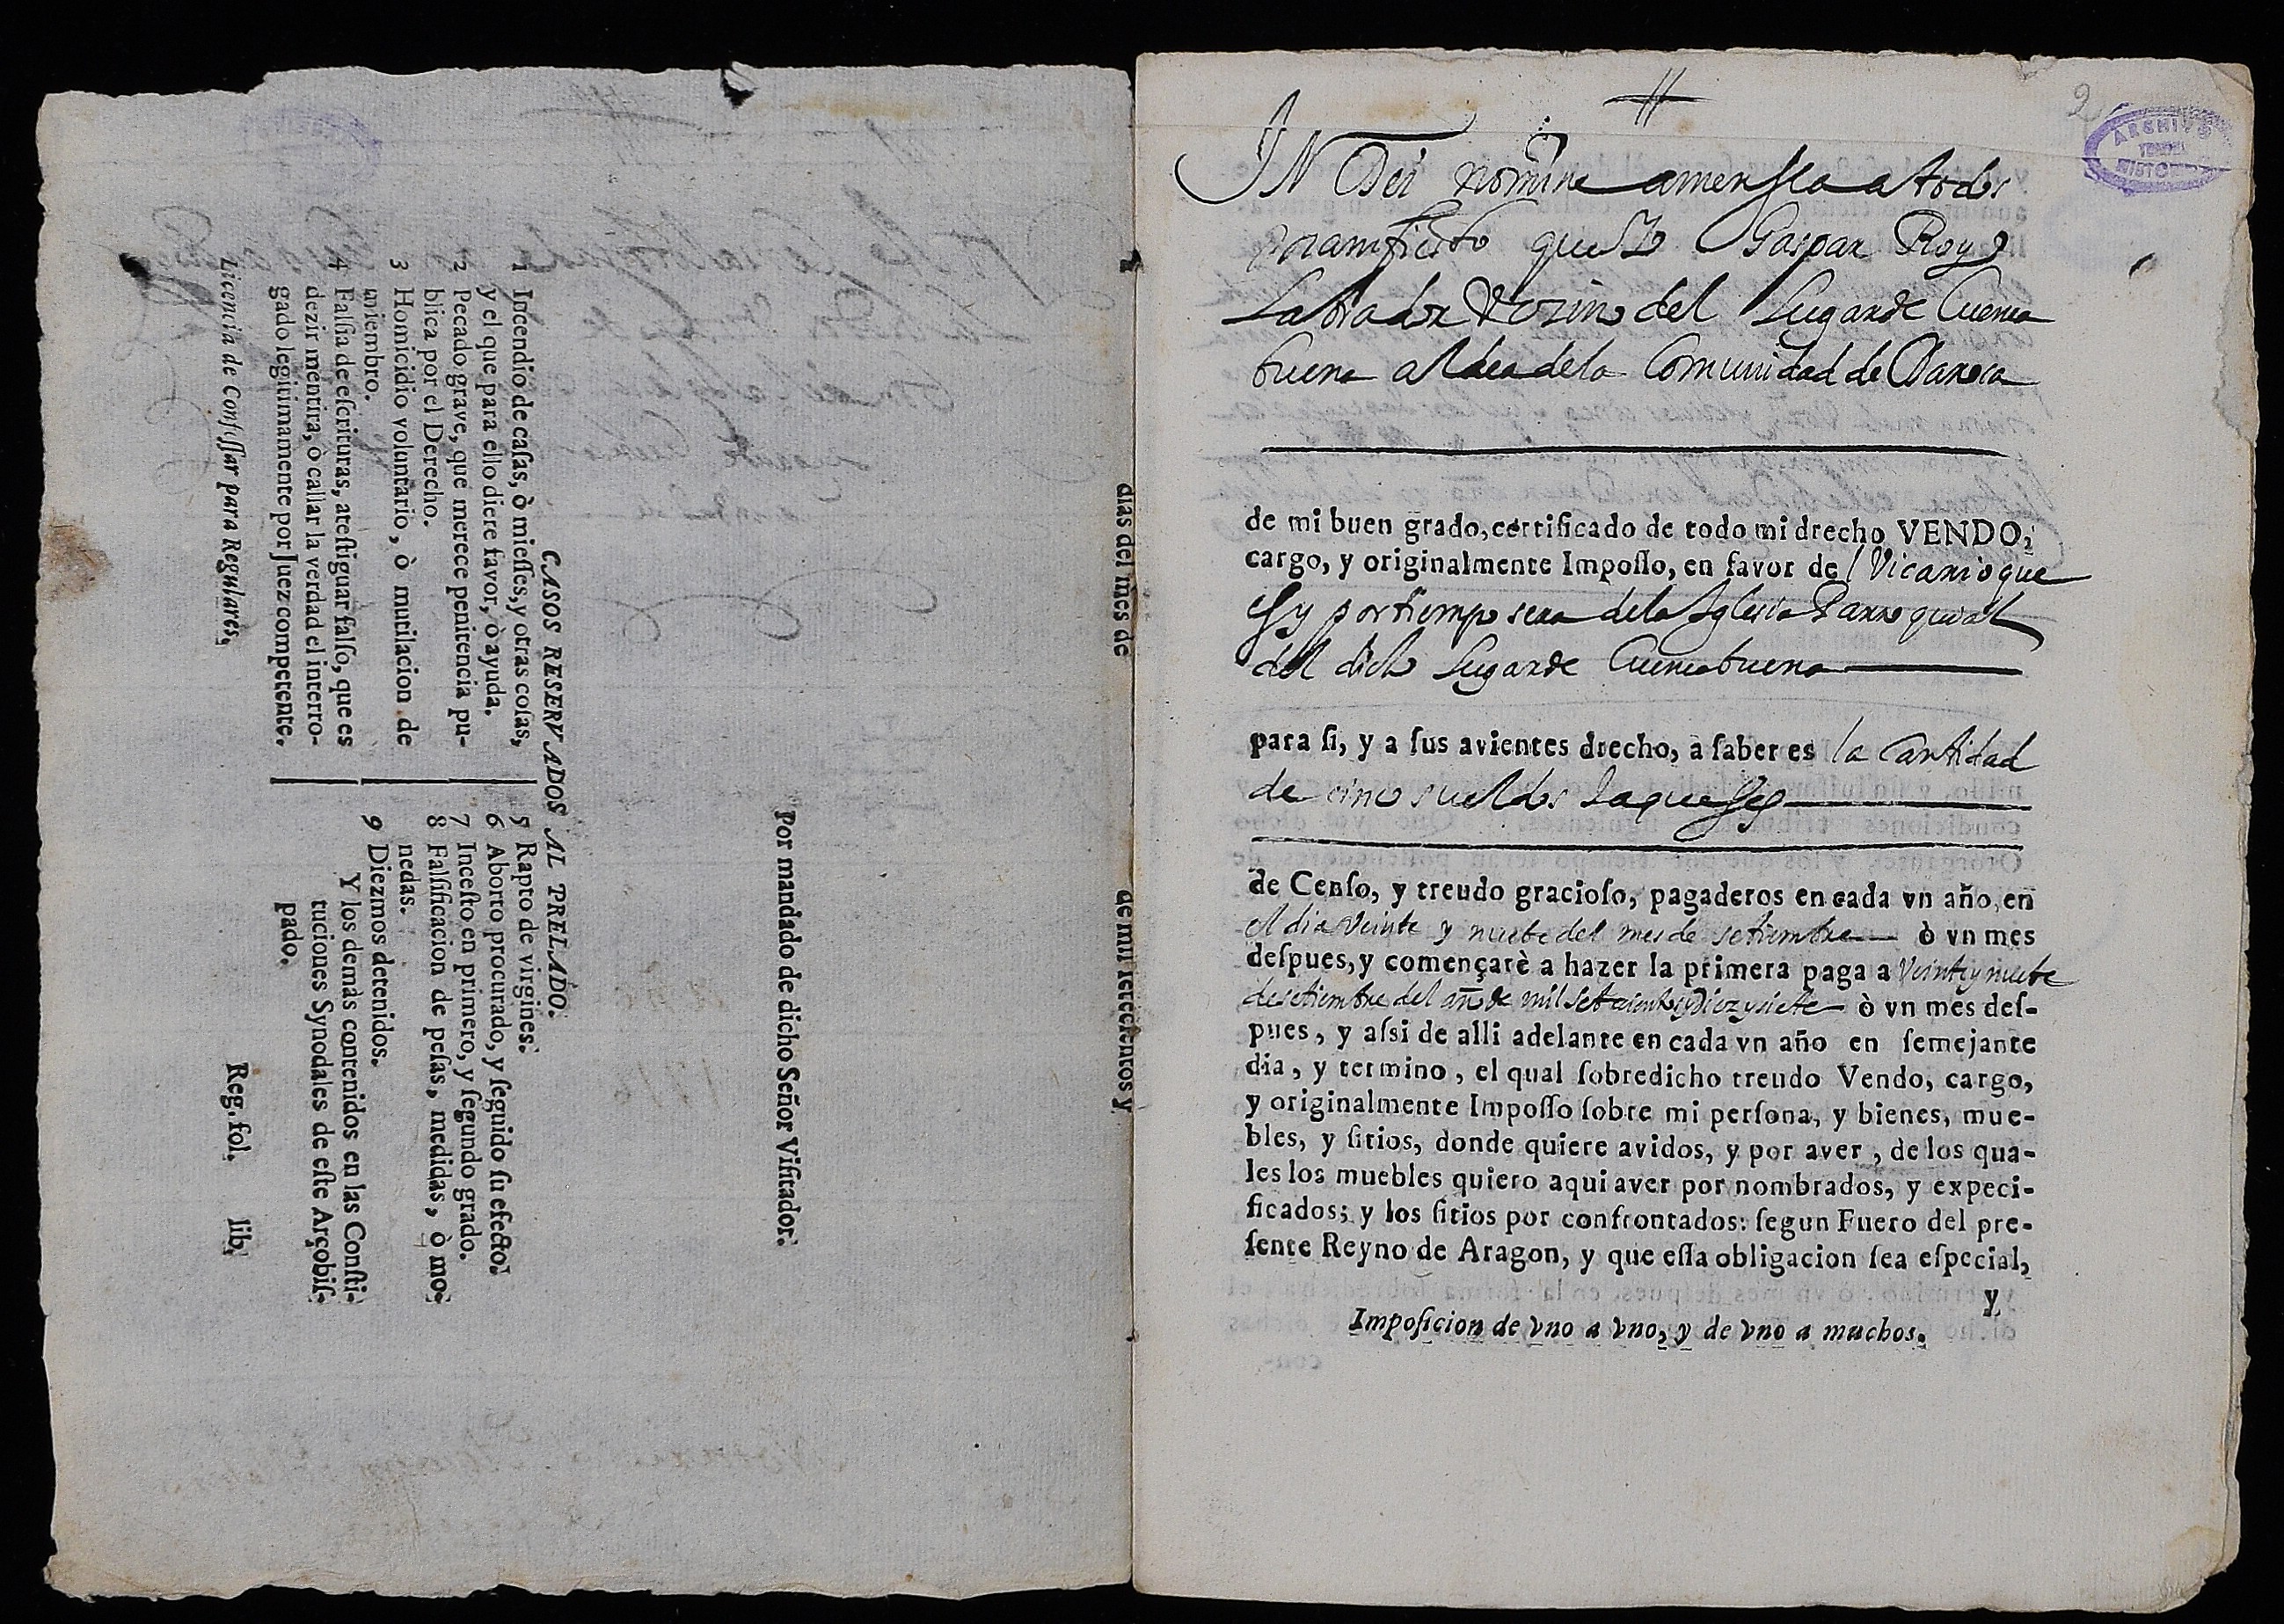 dias del mes de de mil setecientos y
Por mandado de dicho Señor Visitador.
CASOS RESERVADOS AL PRELADO.
1 Incendio de casas, ò miesses, y otras cosas,
y el que para ello diere favor, ò ayuda.
2 Pecado grave, que merece penitencia pu-
blica por el Derecho.
3 Homicidio voluntario, ò mutilacion de
miembro.
4 Falsia de escrituras, atestiguar falso, que es
dezir mentira, ò callar la verdad el interro-
gado legitimamente por Juez competente.
5 Rapto de virgines.
6 Aborto procurado, y seguido su efecto.
7 Incesto en primero, y segundo grado.
8 Falsificacion de pesas, medidas, ò mo-
nedas.
9 Diezmos detenidos.
Y los demàs contenidos en las Consti-
tuciones Synodales de este Arçobis-
pado.
Licencia de Confessar para Regulares.
Reg. fol. lib.
2
ARCHIVO
HISTO
IN Dei nomine amen sea a todos
manifiesto que Yo Gaspar Royo
Labrador Vezino del Lugar de Cuenca
buena aldea de la Comunidad de Daroca
de mi buen grado, certificado de todo mi drecho VENDO,
cargo, y originalmente Imposso, en favor del Vicario que
es y por tiempo sera de la Iglesia Parroquial
del dicho Lugar de Cuencabuena
para si, y a sus avientes drecho, a saber es la cantidad
de cinco sueldos Jaqueses
de Censo, y treudo gracioso, pagaderos en cada vn año, en
el dia Veinte y nuebe del mes de setiembre ò vn mes
despues, y començarè a hazer la primera paga a Veinte y nuebe
de setiembre del año de mil Setecientos y Diez y siete ò vn mes des-
pues, y assi de alli adelante en cada vn año en semejante
dia, y termino, el qual sobredicho treudo Vendo, cargo,
y originalmente Imposso sobre mi persona, y bienes, mue-
bles, y sitios, donde quiere avidos, y por aver, de los qua-
les los muebles quiero aqui aver por nombrados, y expeci-
ficados; y los sitios por confrontados: segun Fuero del pre-
sente Reyno de Aragon, y que essa obligacion sea especial,
y
Imposicion de vno a vno, y de vno a muchos.